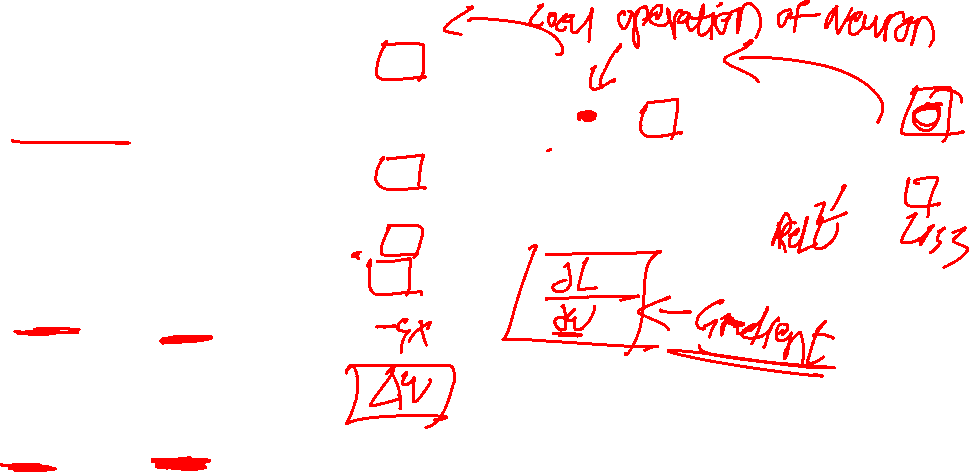 Local operation of Neuron
ReLU
Loss
∂L
∂w
Gradient
Δw